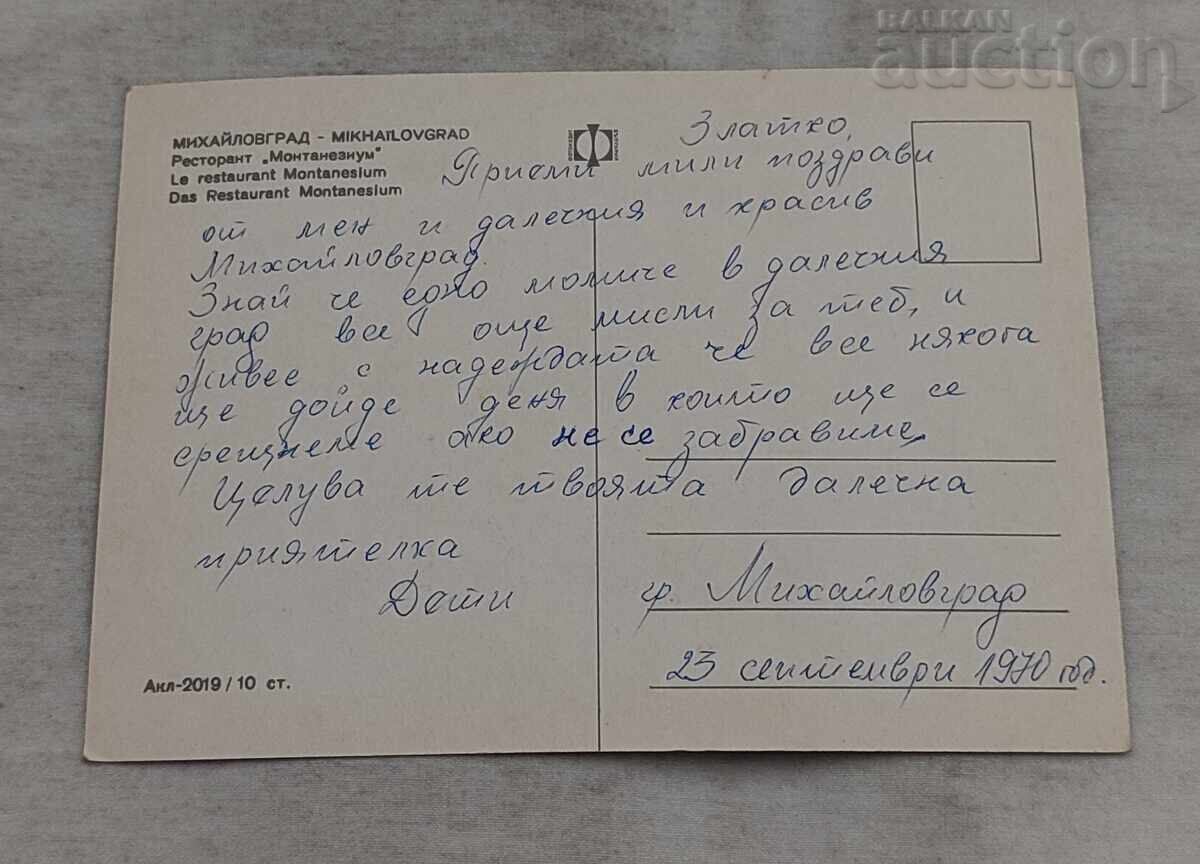 BALKAN
auction
МИХАЙЛОВГРАД - MIKHAÏLOVGRAD
Ресторант „Монтанезиум"
Le restaurant Montanesium
Das Restaurant Montanesium
Златко,
Приеми мили поздрави
от мен и далечния и красив
Михайловград.
Знай че едно момиче в далечния
град все още мисли за теб, и
живее с надеждата че все някога
ще дойде деня в който ще се
срещнеме ако не се забравиме.
Целува те твоята далечна
приятелка
Дети
гр. Михайловград
23 септември 1970 год.
Акл-2019/10 ст.